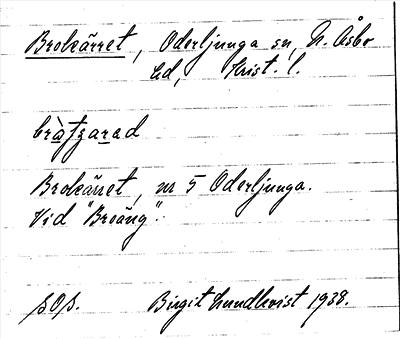 Brokärret, Oderljunga sn, N. Åsbo
hd, Krist. l.
Brokärret, nr 5 Oderljunga.
Vid "Broäng".
Birgit Lundkvist 1938.